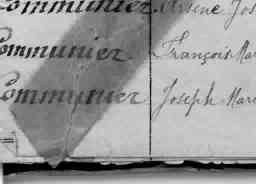 Communier Arsène Jos
Communier François Mar
Communier Joseph Mari